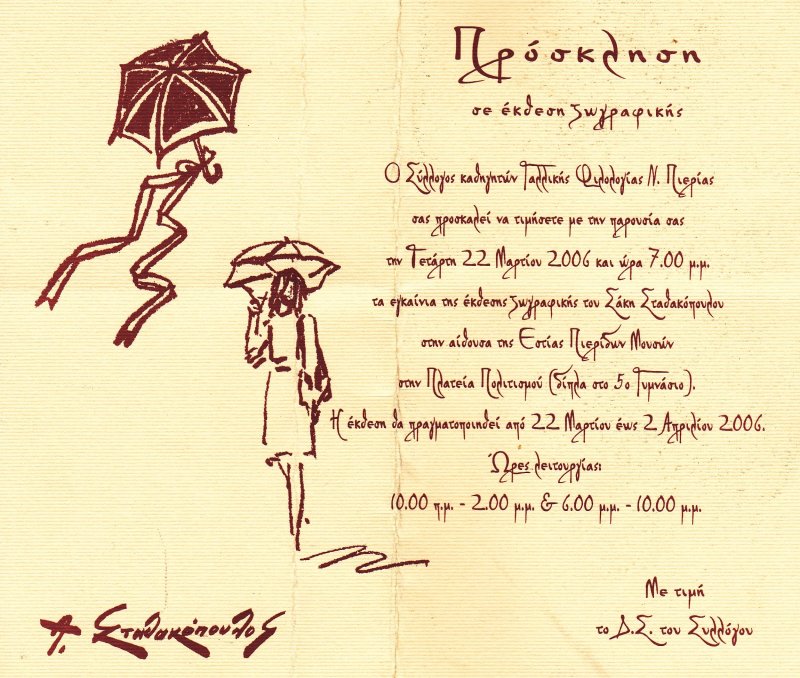 Πρόσκληση
σε έκθεση ζωγραφικής
Ο Σύλλογος καθηγητών Γαλλικής Φιλολογίας Ν. Πιερίας
σας προσκαλεί να τιμήσετε με την παρουσία σας
την Τετάρτη 22 Μαρτίου 2006 και ώρα 7.00 μ.μ.
τα εγκαίνια της έκθεσης ζωγραφικής του Σάκη Σταθακόπουλου
στην αίθουσα της Εστίας Πιερίδων Μουσών
στην Πλατεία Πολιτισμού (δίπλα στο 5ο Γυμνάσιο).
Η έκθεση θα πραγματοποιηθεί από 22 Μαρτίου έως 2 Απριλίου 2006.
Ώρες λειτουργίας:
10.00 π.μ. - 2.00 μ.μ. & 6.00 μ.μ. - 10.00 μ.μ.
Με τιμή
το Δ.Σ. του Συλλόγου
Α. Σταθακόπουλος